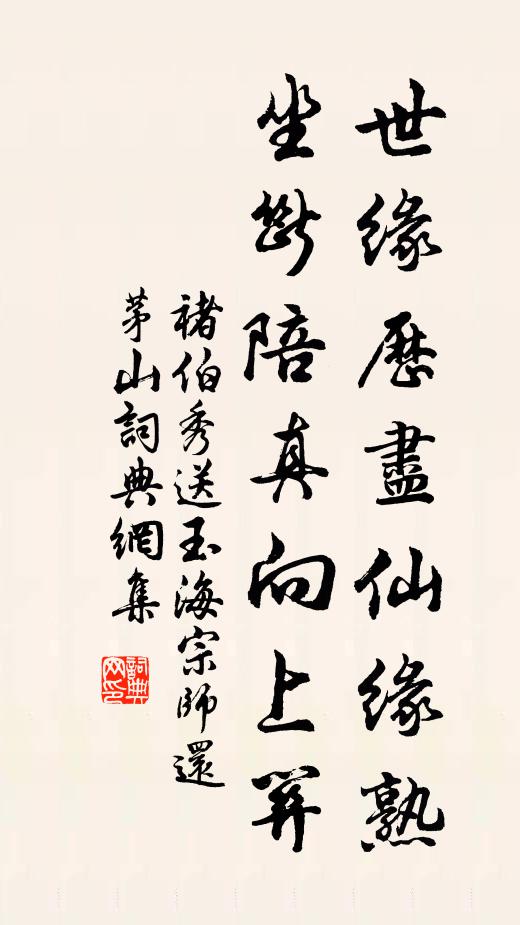 世緣歷盡仙緣熟
坐斷陪真向上關
褚伯秀送玉海宗師還
茅山詞典網集
詞典
网印